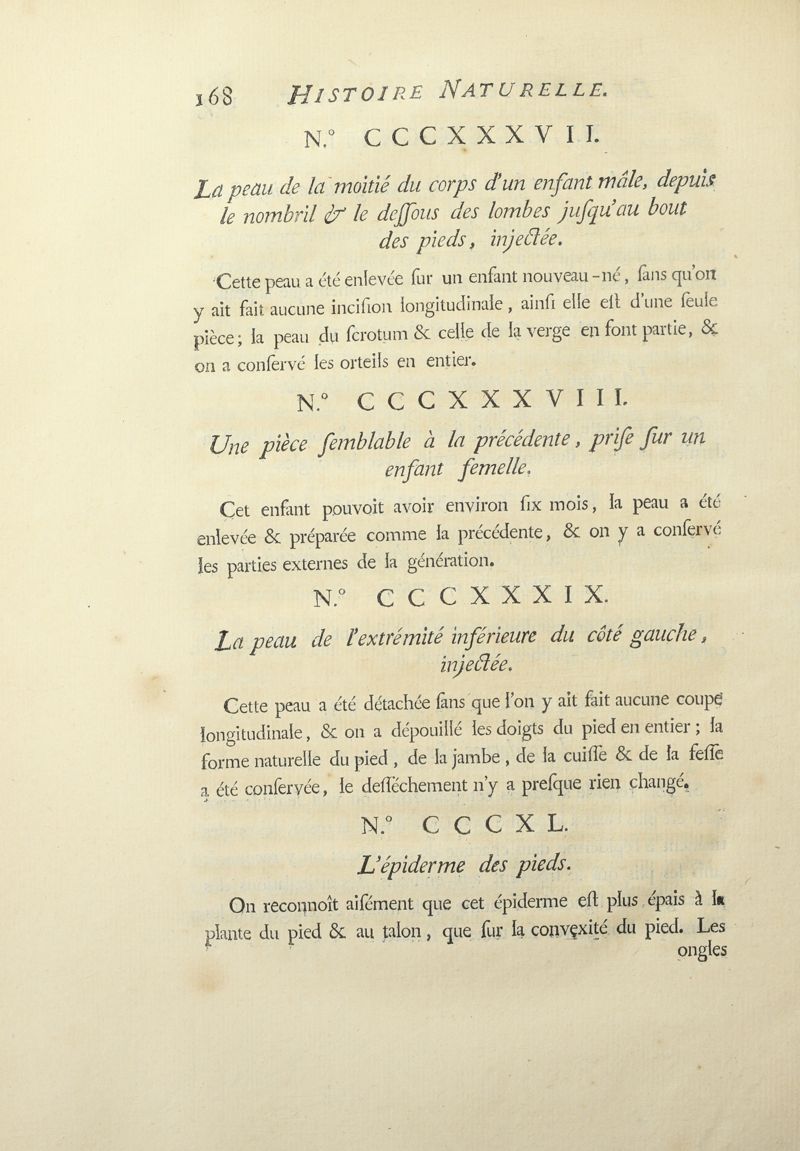 168 HISTOIRE NATURELLE.
N.° CCCXXXVII.
La peau de la moitié du corps d'un enfant mâle, depuis
le nombril & le deſſous des lombes juſqu'au bout
des pieds, injectée.
Cette peau a été enlevée ſur un enfant nouveau-né, ſans qu'on
y ait fait aucune inciſion longitudinale, ainſi elle eſt d'une ſeule
pièce; la peau du ſcrotum & celle de la verge en font partie, &
on a conſervé les orteils en entier.
N.° CCCXXXVIII.
Une pièce ſemblable à la précédente, priſe ſur un
enfant femelle.
Cet enfant pouvoit avoir environ ſix mois, la peau a été
enlevée & préparée comme la précédente, & on y a conſervé
les parties externes de la génération.
N.° CCCXXXIX.
La peau de l'extrémité inférieure du côté gauche,
injectée.
Cette peau a été détachée ſans que l'on y ait fait aucune coupe
longitudinale, & on a dépouillé les doigts du pied en entier; la
forme naturelle du pied, de la jambe, de la cuiſſe & de la feſſe
a été conſervée, le deſſéchement n'y a preſque rien changé.
N.° CCCXL.
L'épiderme des pieds.
On reconnoît aiſément que cet épiderme eſt plus épais à la
plante du pied & au talon, que ſur la convexité du pied. Les
ongles